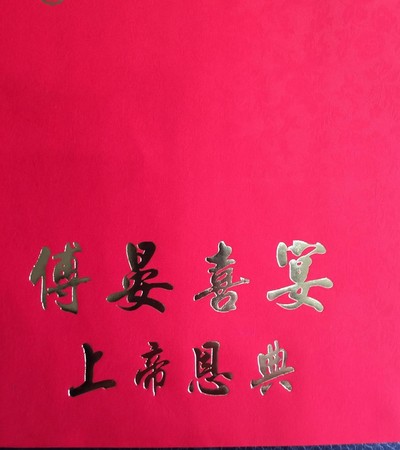 傅晏喜宴
上帝恩典